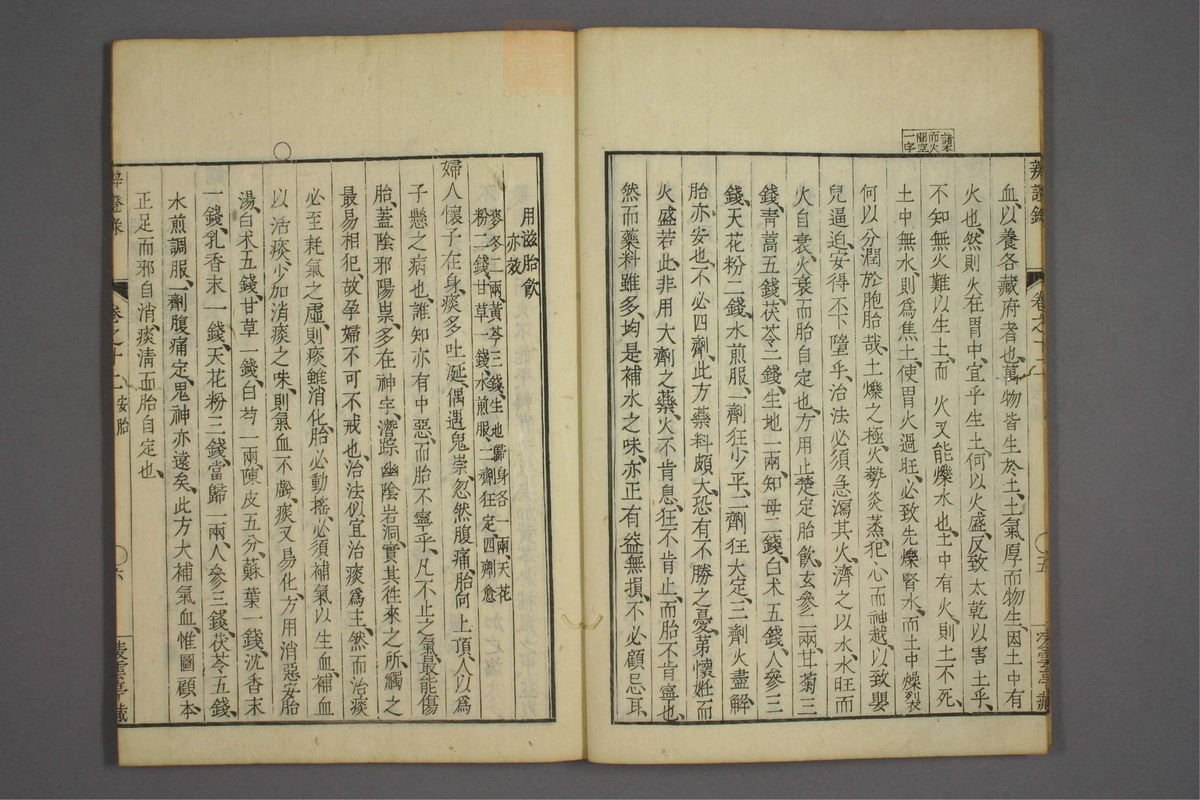 辨證錄
卷之十二
五
諸本
而火
間空
一字
血、以養各藏府者也、萬物皆生於土、土氣厚而物生、因土中有
火也、然則火在胃中、宜乎生土、何以火盛、反致太乾以害土乎、
不知無火難以生土、而 火又能爍水也、土中有火、則土不死、
土中無水、則爲焦土、使胃火過旺、必致先爍腎水、而土中燥裂、
何以分潤於胞胎哉、土爍之極、火勢炎蒸、犯心而神越、以致嬰
兒逼迫、安得不下墮乎、治法必須急瀉其火、濟之以水、水旺而
火自衰、火衰而胎自定也、方用止楚定胎飲、玄參二兩、甘菊三
錢、青蒿五錢、茯苓二錢、生地一兩、知母二錢、白术五錢、人參三
錢、天花粉二錢、水煎服、一劑狂少平、二劑狂大定、三劑火盡解、
胎亦安也、不必四劑、此方藥料頗大、恐有不勝之憂、第懷姙而
火盛若此、非用大劑之藥、火不肯息、狂不肯止、而胎不肯寧也、
然而藥料雖多、均是補水之味、亦正有益無損、不必顧忌耳、
用滋胎飲
亦效
麥冬二兩、黃芩三錢、生地歸身各一兩、天花
粉二錢、甘草一錢、水煎服、二劑狂定、四劑愈
婦人懷子在身、痰多吐涎、偶遇鬼祟、忽然腹痛、胎向上頂、人以爲
子懸之病也、誰知亦有中惡、而胎不寧乎、凡不止之氣、最能傷
胎、蓋陰邪陽祟、多在神宇、潛踪幽陰岩洞、實其徃來之所、觸之
最易相犯、故孕婦不可不戒也、治法似宜治痰爲主、然而治痰
必至耗氣之虛、則痰雖消化、胎必動搖、必須補氣以生血、補血
以活痰、少加消痰之味、則氣血不虧、痰又易化、方用消惡安胎
湯、白术五錢、甘草一錢、白芍一兩、陳皮五分、蘇葉一錢、沈香末
一錢、乳香末一錢、天花粉三錢、當歸一兩、人參三錢、茯苓五錢、
水煎調服、一劑腹痛定、鬼神亦遠矣、此方大補氣血、惟圖顧本、
正足而邪自消、痰淸而胎自定也、
卷之十二 安胎
六